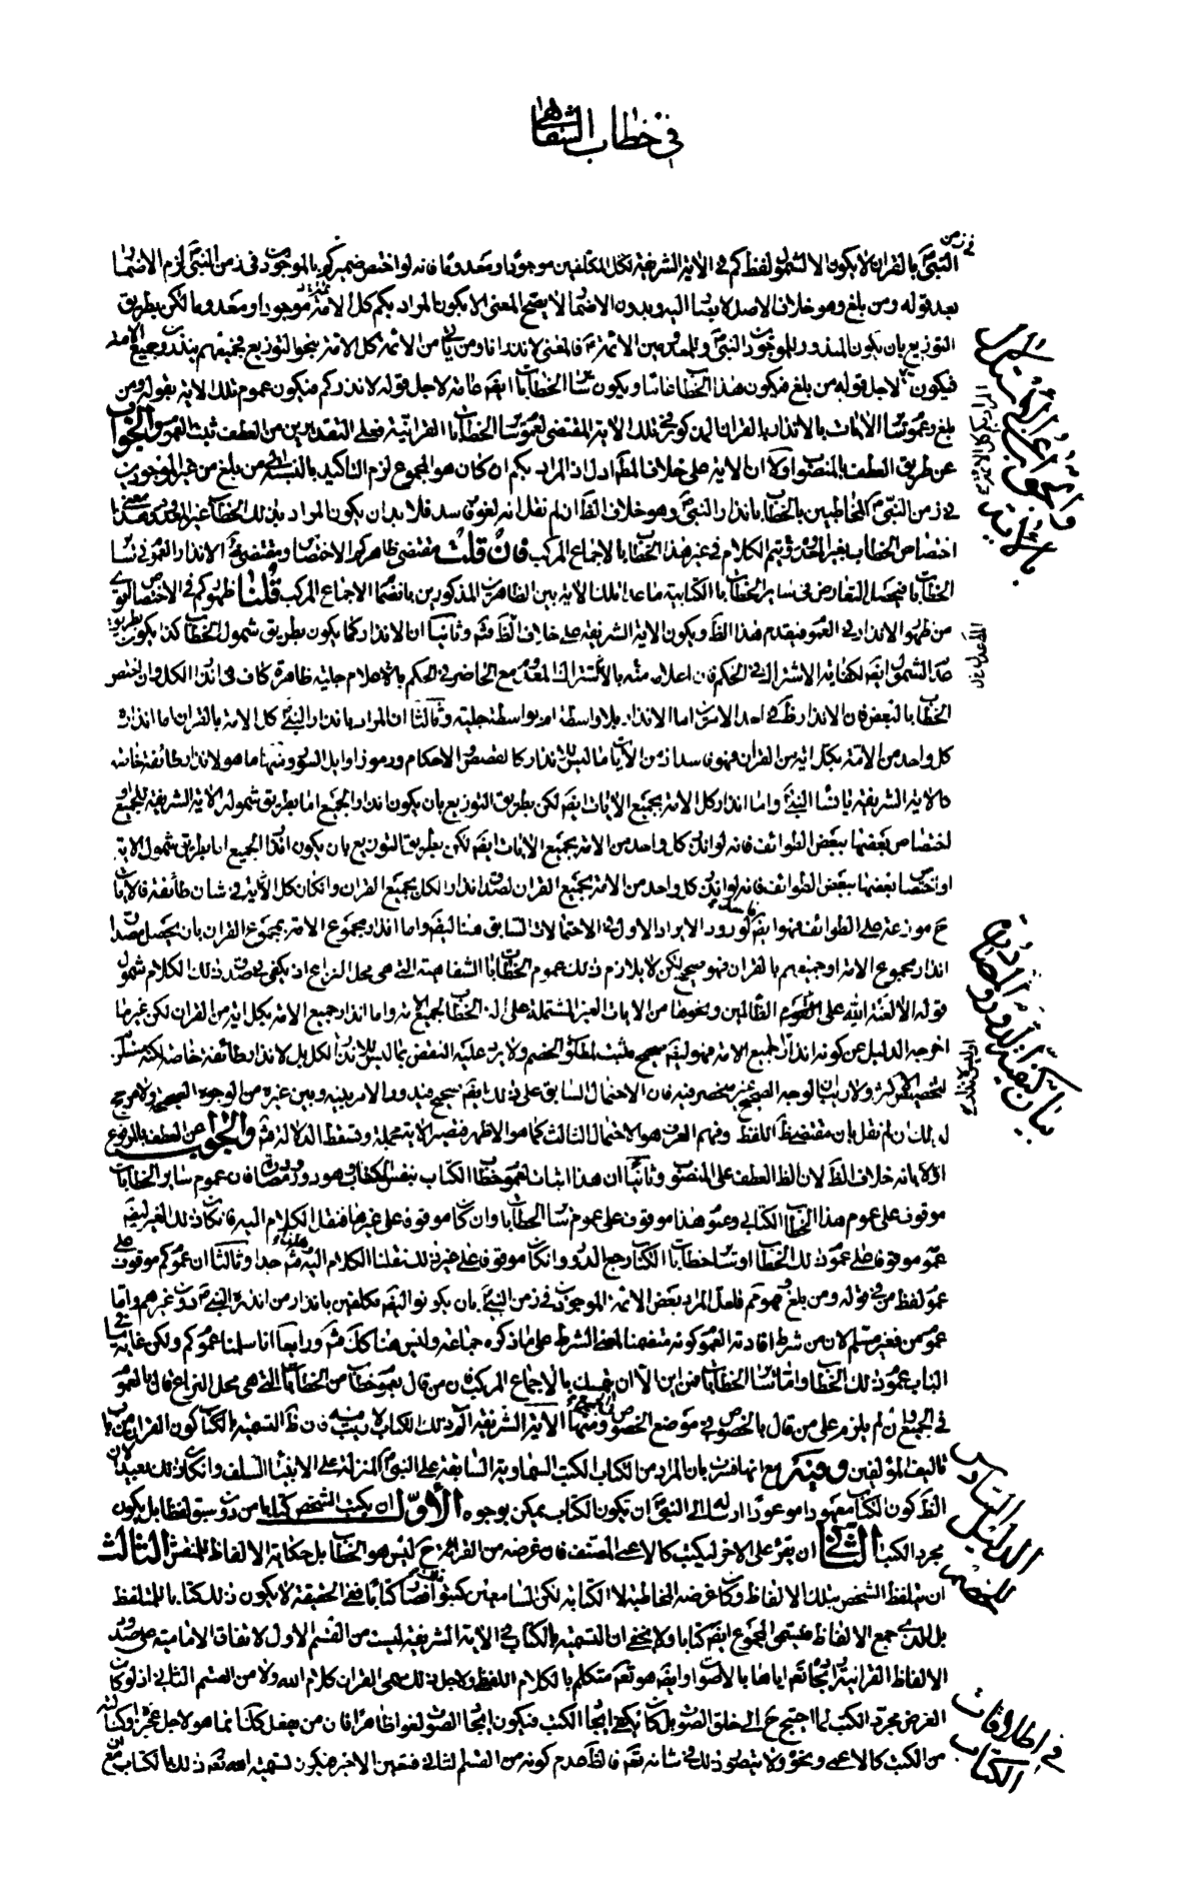 في خطاب الشفاهي
النبي بالقران لا يكون الا لشمول لفظ كم في الاية الشريفة لكل المكلفين موجودا ومعدوما فانه لو اختص ضميركم بالموجودين في زمن النبي لزم الاضمار
بعد قوله ومن بلغ وهو خلاف الاصل لا يصار اليه وبدون الاضمار لا يصح المعنى الا بكون المراد بكم كل الامة موجودا ومعدوما لكن بطريق
التوزيع بان يكون المنذر للموجودين النبي وللمعدومين الائمة فالمعنى لانذر انا ومن ياتي من الائمة كل الامة بنحو التوزيع فجميعهم ينذر جميع الامة
فيكون لاجل قوله من بلغ فيكون هذا الخطاب عاما ويكون سائر الخطابات ايضا عامة لاجل قوله لانذركم فيكون عموم تلك الاية بقوله ومن
بلغ وعموم سائر الايات بالانذار بالقران المذكور في تلك الاية المقتضي لعموم سائر الخطابات القرانية فعلى التقديرين من العطف ثبت العموم والجواب
عن طريق العطف بالمنصوب اولا ان الاية على خلاف المط ادل اذ المراد بكم ان كان هو المجموع لزم التاكيد بالنسبة الى من بلغ من غير الموجودين
في زمن النبي المخاطبين بالخطاب بانذار النبي وهو خلاف الظ ان لم نقل انه لغو فلا بد ان يكون المراد بذلك الخطاب غير المعدومين
اختصاص الخطاب بغير المعدومين ويتم الكلام في غير هذا الخطاب بالاجماع المركب فان قلت مقتضى ظاهركم الاختصاص ومقتضى الانذار العموم في سائر
الخطابات فيحصل التعارض في سائر الخطابات الكتابية ما عدا تلك الاية بين الظاهرين المذكورين بانضمام الاجماع المركب قلنا ظهوركم في الاختصاص اقوى
من ظهور الانذار في العموم فيقدم هذا الظ ويكون الاية الشريفة على خلاف الظ ثم وثانيا ان الانذار كما يكون بطريق شمول الخطاب كذا يكون بطريق
عدم الشمول ايضا لكفاية الاشتراك في الحكم فان اعلام منه بالاشتراك المعدوم مع الحاضر في الحكم بالاعلام جلية ظاهرة كاف في انذار الكل وان اختص
الخطاب بالبعض فان الانذار ظ في احد الامرين اما الانذار بلا واسطة او بواسطة جلية وثالثا ان المراد بانذار النبي كل الامة بالقران اما انذار
كل واحد من الامة بكل اية من القران فهو فاسد اذ من الايات ما ليس للانذار كالقصص والاحكام ورموز اوايل السور ومنها ما هو لانذار طائفة خاصة
كالاية الشريفة يا نساء النبي واما انذار كل الامة بجميع الايات ايضا لكن بطريق التوزيع بان يكون انذار الجميع اما بطريق شموله الاية الشريفة للجميع او
اختصاص بعضها ببعض الطوائف فانه لو انذر كل واحد من الامة بجميع الايات ايضا لكن بطريق التوزيع بان يكون انذار الجميع اما بطريق شمول الاية
او اختصاص بعضها ببعض الطوائف فانه لو انذر كل واحد من الامة بجميع القران لصدق انذار الكل بجميع القران وان كان كل الاية في شان طائفة فالايات
ح موزعة على الطوائف فهو ايضا فاسد لورود الايراد الاول في الاحتمالات السابق هنا ايضا واما انذار مجموع الامة بمجموع القران بان يحصل مصداق
انذار مجموع الامة او جميعهم بالقران فهو صحيح لكن لا يلازم ذلك عموم الخطابات الشفاهية التي هي محل النزاع اذ يكفي في صدق ذلك الكلام شمول
قوله الا لعنة الله على القوم الظالمين ونحوها من الايات الغير المشتملة على اداة الخطاب لجميع الامة واما انذار جميع الامة بكل اية من القران لكن غيرها
اخرجه الدليل عن كونه انذارا لجميع الامة فهو ايضا صحيح مثبت لمطلق الخصم ولا يرد عليه النقض بما ليس للانذار الكل بل لانذار طائفة خاصة لكنه مستلزم
لتخصيص الاكثر ولا ريب ان الوجه الصحيح غير منحصر فيه فان الاحتمال السابق على ذلك ايضا صحيح فيدور الامر بينه وبين غيره من الوجوه الصحيحة ولا مرجح
له بذلك ان لم نقل بان مقتضى ظ اللفظ وفهم العرف هو الاحتمال الثالث كما هو الاظهر فتصير الاية مجملة وتسقط الدلالة ثم والجواب عن العطف بالرفع
اولا بانه خلاف الظ لان الظ العطف على المنصوب وثانيا ان هذا اثبات لعموم خطاب الكتاب بنفس الكتاب وهو دور ومصادرة فان عموم سائر الخطابات
موقوف على عموم هذا الخطاب الكتابي وعموم هذا موقوف على عموم سائر الخطابات وان كان موقوفا على غيرها فننقل الكلام اليه فان كان ذلك الغير ايضا
عموما موقوفا على عموم ذلك الخطاب او سائر خطابات الكتاب رجع الدور وان كان موقوفا على غير ذلك نقلنا الكلام اليه ثم هلم جرا وثالثا ان عموم كم موقوف على
عموم لفظ من في قوله ومن بلغ وعموم ثم فلعل المراد بعض الائمة الموجودين في زمن النبي بان يكونوا ايضا مكلفين بانذار من انذره النبي دون غيرهم واما
عموم من فغير مسلم لان من شرط افادته العموم كونه متضمنا لمعنى الشرط على ما ذكره جماعة وليس هنا كك ثم ورابعا انا سلمنا عموم كم ولكن غاية ما في
الباب عموم ذلك الخطاب واما سائر الخطابات فمن اين الا ان يتمسك بالاجماع المركب فان من قال بعموم خطاب من الخطابات التي هي محل النزاع قال بالعموم
في الجميع وان لم يلزم على من قال بالخصوص في موضع الخصوص ومنها الاية الشريفة الم ذلك الكتاب لا ريب فيه فان ظ التسمية بالكتاب كون القران من باب
تاليف المؤلفين وفيه مع انها فسرت بان المراد من الكتاب الكتب السماوية السابقة على النبي المنزلة على الانبياء السلف وان كان ذلك بعيدا لان
الظ كون الكتاب معهودا موعودا ارساله الى النبي ان يكون الكتاب يمكن بوجوه الاول ان يكتب الشخص كتابا من دون سبق لفظ بل يكون
مجرد الكتب الثاني ان يقرء على الاخر ليكتب كالاعمى المصنف فان غرضه من القرائة ح ليس هو الخطاب بل حكاية الالفاظ للنقش الثالث
ان يتلفظ الشخص بتلك الالفاظ وكان غرضه المخاطبة لا الكتابة لكن السامعين كتبوا فصار كتابا ففي الحقيقة لا يكون ذلك كتاب المتلفظ
بل للذي جمع الالفاظ فيسمى المجموع ايضا كتابا ولا يخفى ان التسمية بالكتاب في الاية الشريفة ليست من القسم الاول لاتفاق الامامية على صدور
الالفاظ القرانية بايجاده تعالى اياها بالاصوات وايضا هو تعالى متكلم بالكلام اللفظي ولاجل ذلك سمى القران كلام الله ولا من القسم الثاني اذ لو كان
الغرض مجرد الكتب لما احتيج ح الى خلق الصوت بل كان يكفي ايجاد الكتب فيكون ايجاد الصوت لغوا ظاهرا فان من جعل ككتابا انما هو لاجل عجزه
من الكتب كالاعمى ونحوه ولا يتصور ذلك في شانه تعالى فالظ عدم كونه من القسم الثاني فتعين الاخير فيكون تسميته الله تعالى ذلك بالكتاب
بيان كيفية الدور والمصادرة
الدليل السادس للخصم
في اطلاقات الكتاب